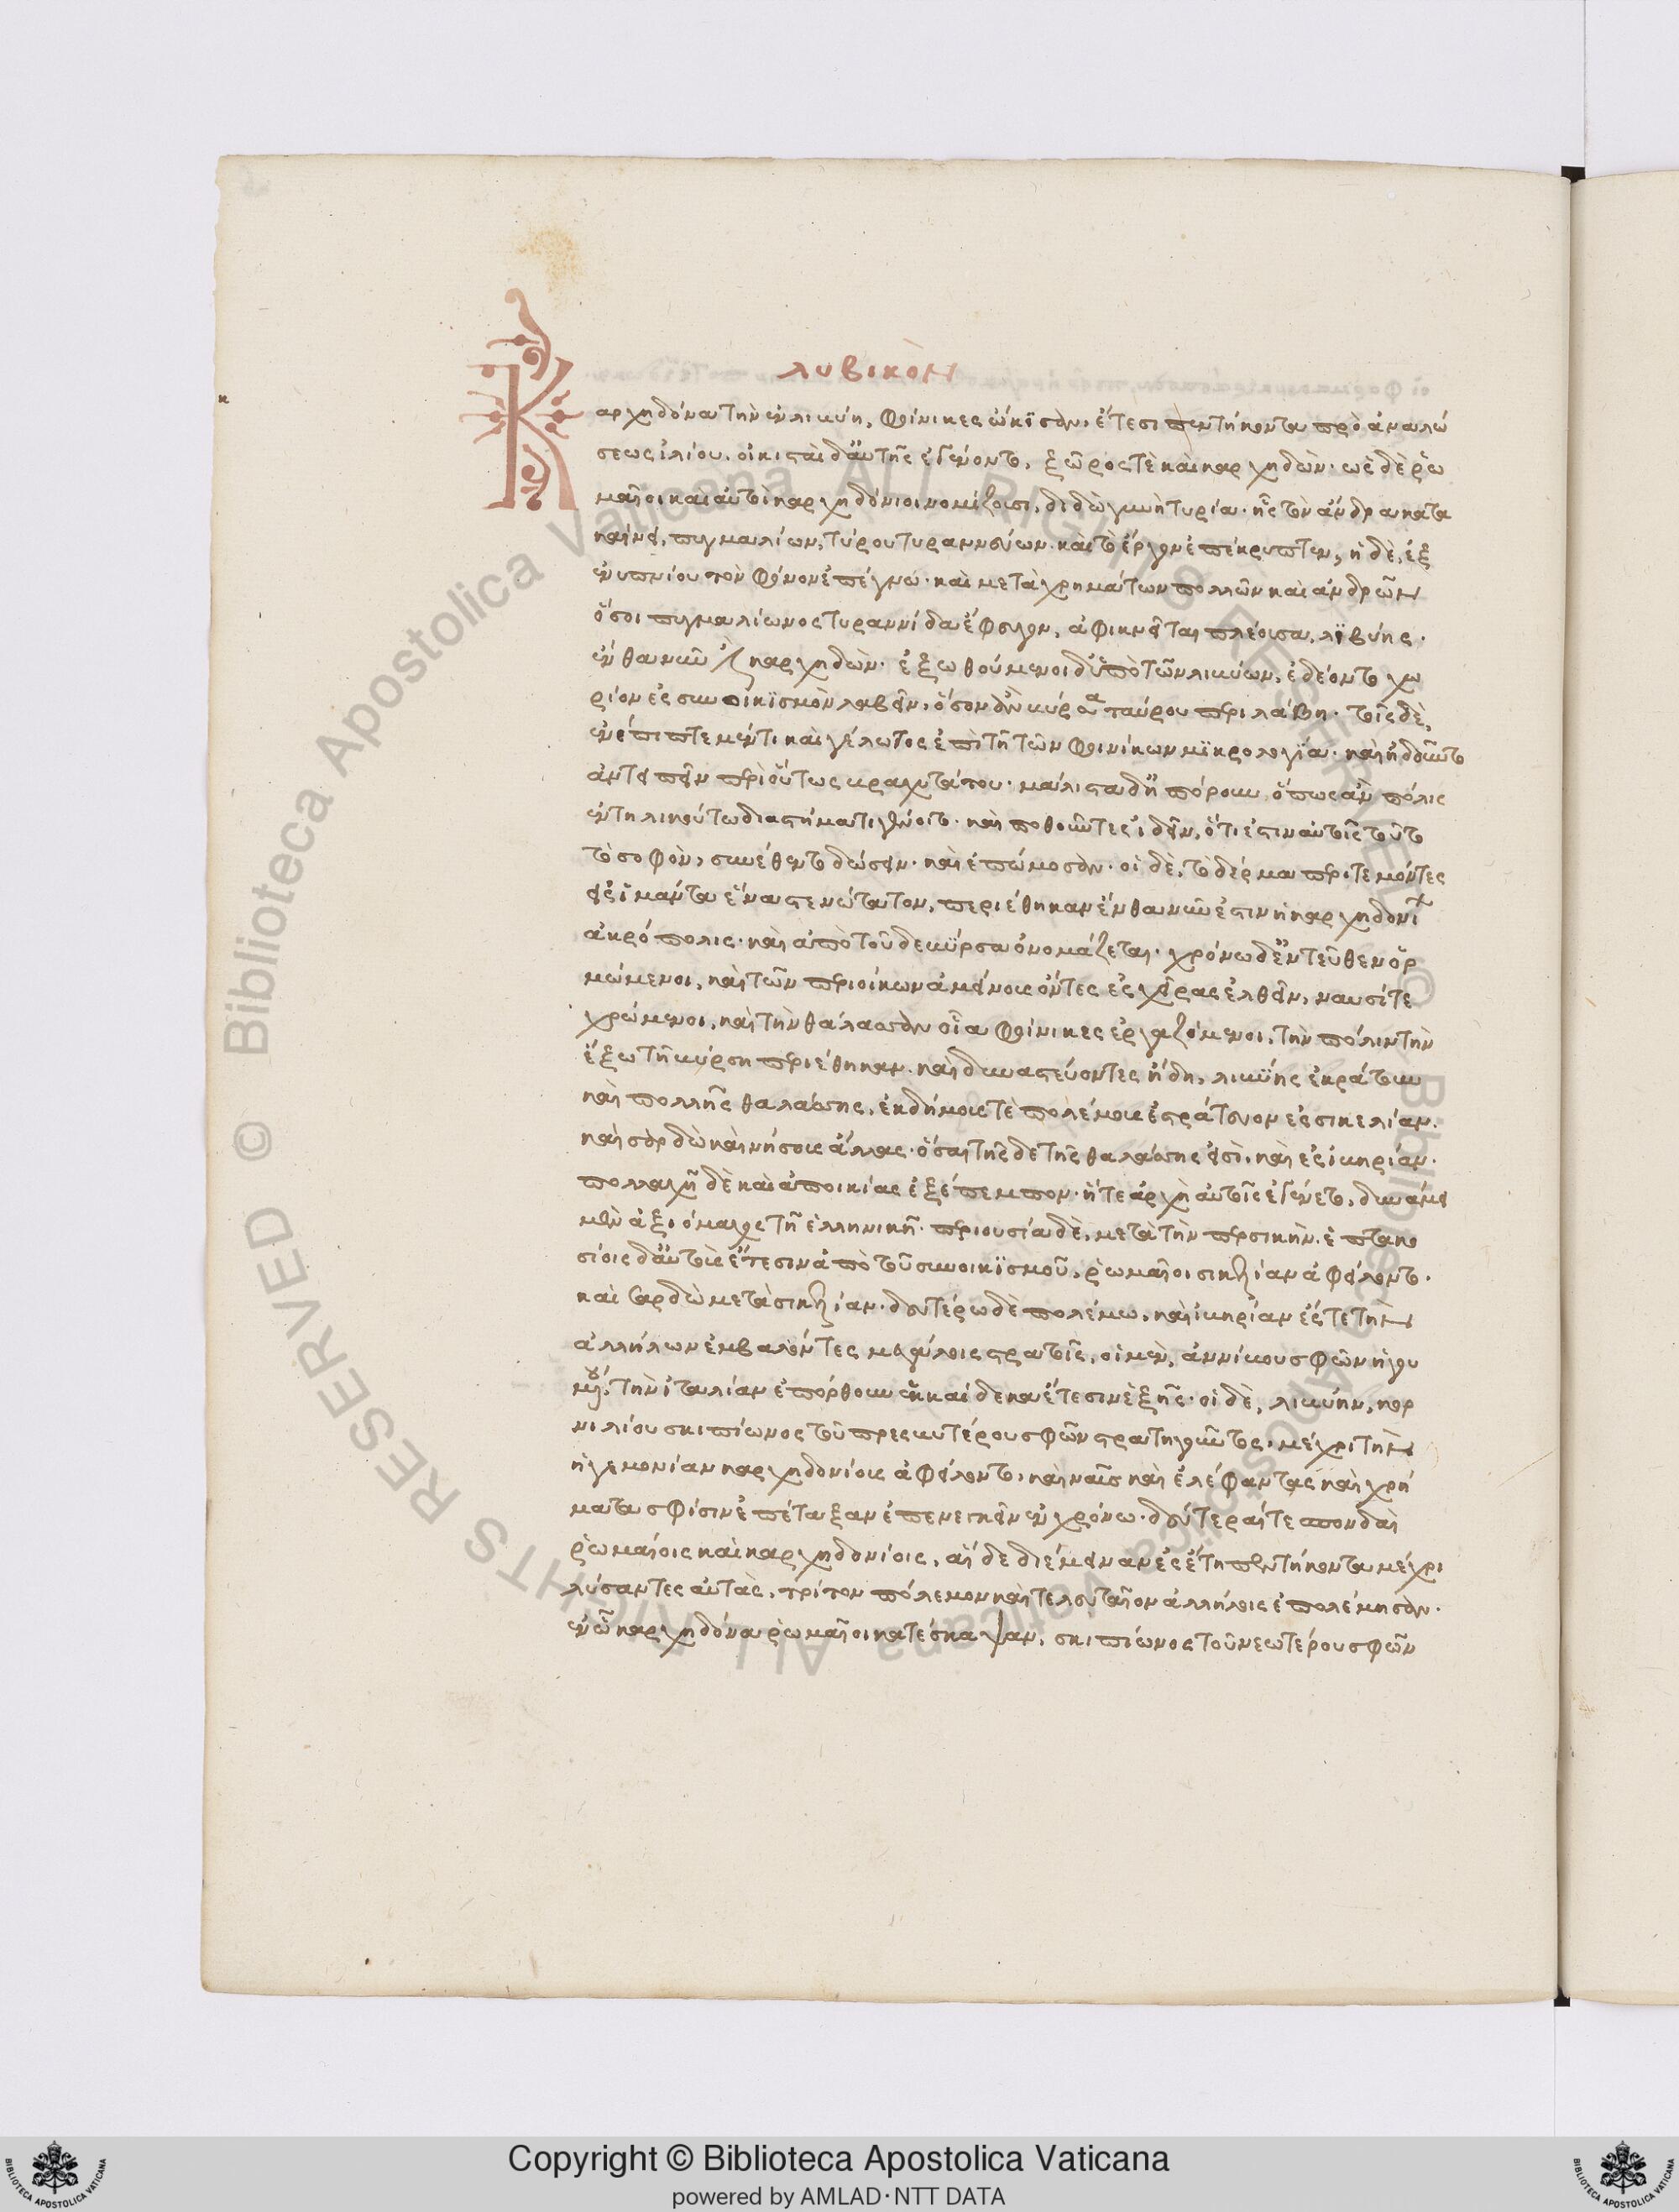 λυβικὸν
Καρχηδόνα τὴν ἐν λιβύη, Φοίνικες ὤκϊσαν. ἔτεσι πεντήκοντα πρὸ ἁναλώ
σεως ἰλίου. οἰκισταὶ δ' αὐτῆς ἐγένοντο, ξῶρός τὲ καὶ καρχηδών. ὡς δὲ ῥω
μαῖοι καὶ αὐτοὶ καρχηδόνιοι νομίζουσι, διδὼ γυνὴ τυρία. ἧς τὸν ἄνδρα κατα
καίνει, πυγμαλίων, τύρου τυραννεύων. καὶ τὸ ἔργον ἐπέκρυπτεν, ἡ δὲ, ἐξ
ἐνυπνίου τὸν φόνον ἐπέγνω. καὶ μετὰ χρημάτων πολλῶν καὶ ἀνδρῶν
ὅσοι πυγμαλίωνος τυραννίδα ἔφευγον, ἀφικνεῖται πλέουσα, λϊβύης.
ἔνθα νῦν ἐστι καρχηδών. ἐξωθούμενοι δ' ὑπὸ τῶν λιβύων, ἐδέοντο χω
ρίον ἐς συνοικϊσμὸν λαβεῖν, ὅσον ἂν βύρσα ταύρου περιλάβη. τοῖς δὲ,
ἐνέπιπτε μέν τι καὶ γέλωτος ἐπὶ τῆ τῶν Φοινίκων μϊκρολογία. καὶ ἠδοῦντο
ἀντειπεῖν περὶ οὕτως βραχυτάτου. μάλιστα δ' ἠπόρουν ὅπως ἂν πόλις
ἐν τηλικούτω διαστήματι γένοιτο. καὶ ποθοῦντες ἰδεῖν, ὅτι ἐστὶν αὐτοῖς τοῦτο
τὸ σοφὸν, συνέθεντο δώσειν. καὶ ἐπώμοσαν. οἱ δὲ, τὸ δέρμα περιτεμόντες
εἰς ἱμάντα ἕνα στενώτατον, περιέθηκαν ἔνθα νῦν ἐστὶν ἡ καρχηδονίων
ἀκρόπολις. καὶ ἀπὸ τοῦδε βύρσα ὀνομάζεται. χρόνω δ' ἐντεῦθεν ὁρ
μώμενοι, καὶ τῶν περιοίκων ἀμείνους ὄντες ἐς χεῖρας ἐλθεῖν, ναυσί τε
χρώμενοι, καὶ τὴν θάλασσαν οἷα Φοίνικες ἐργαζόμενοι, τὴν πόλιν τὴν
ἔξω τῆ βύρση περιέθηκαν. καὶ δυναστεύοντες ἤδη, λιβύης ἐκράτουν
καὶ πολλῆς θαλάσσης, ἐκδήμους τὲ πολέμους ἐστράτευον ἐς σικελίαν.
καὶ σαρδὼ καὶ νήσους ἄλλας. ὅσαι τῆσδε τῆς θαλάσσης εἰσὶ. καὶ ἐς ἰβηρίαν.
πολλαχῆ δὲ καὶ ἀποικίας ἐξέπεμπον. ἥ τε ἀρχὴ αὐτοῖς ἐγένετο, δυνάμει
μὲν ἀξιόμαχος τῆ ἑλληνικῆ. περιουσία δὲ, μετὰ τὴν περσικὴν. ἑπτακο
σίοις δ' αὐτοὺς ἔτεσιν ἀπὸ τοῦ συνοικϊσμοῦ, ῥωμαῖοι σικελίαν ἀφείλοντο.
καὶ σαρδὼ μετὰ σικελίαν. δευτέρω δὲ πολέμω, καὶ ἰβηρίαν ἔς τε τὴν
ἀλλήλων ἐμβαλόντες μεγάλοις στρατοῖς, οἱ μὲν, ἀννίβου σφῶν ἡγου
μένου, τὴν ἰταλίαν ἐπόρθουν ἑκκαίδεκα ἔτεσιν ἑξῆς. οἱ δὲ, λιβύην, κορ
νιλίου σκιπίωνος τοῦ πρεσβυτέρου σφῶν στρατηγοῦντος, μέχρι τὴν
ἡγεμονίαν καρχηδονίους ἀφείλοντο, καὶ ναῦς καὶ ἐλέφαντας καὶ χρή
ματα σφίσιν ἐπέταξαν ἐπενεγκεῖν ἐν χρόνω. δεύτεραί τε σπονδαὶ
ῥωμαίοις καὶ καρχηδονίοις, αἵδε διέμειναν ἐς ἔτη πεντήκοντα μέχρι
λύσαντες αὐτὰς, τρίτον πόλεμον καὶ τελευταῖον ἀλλήλοις ἐπολέμησαν.
ἐν ὧ καρχηδόνα ῥωμαῖοι κατέσκαψαν, σκιπίωνος τοῦ νεωτέρου σφῶν
Copyright © Biblioteca Apostolica Vaticana
powered by AMLAD · NTT DATA